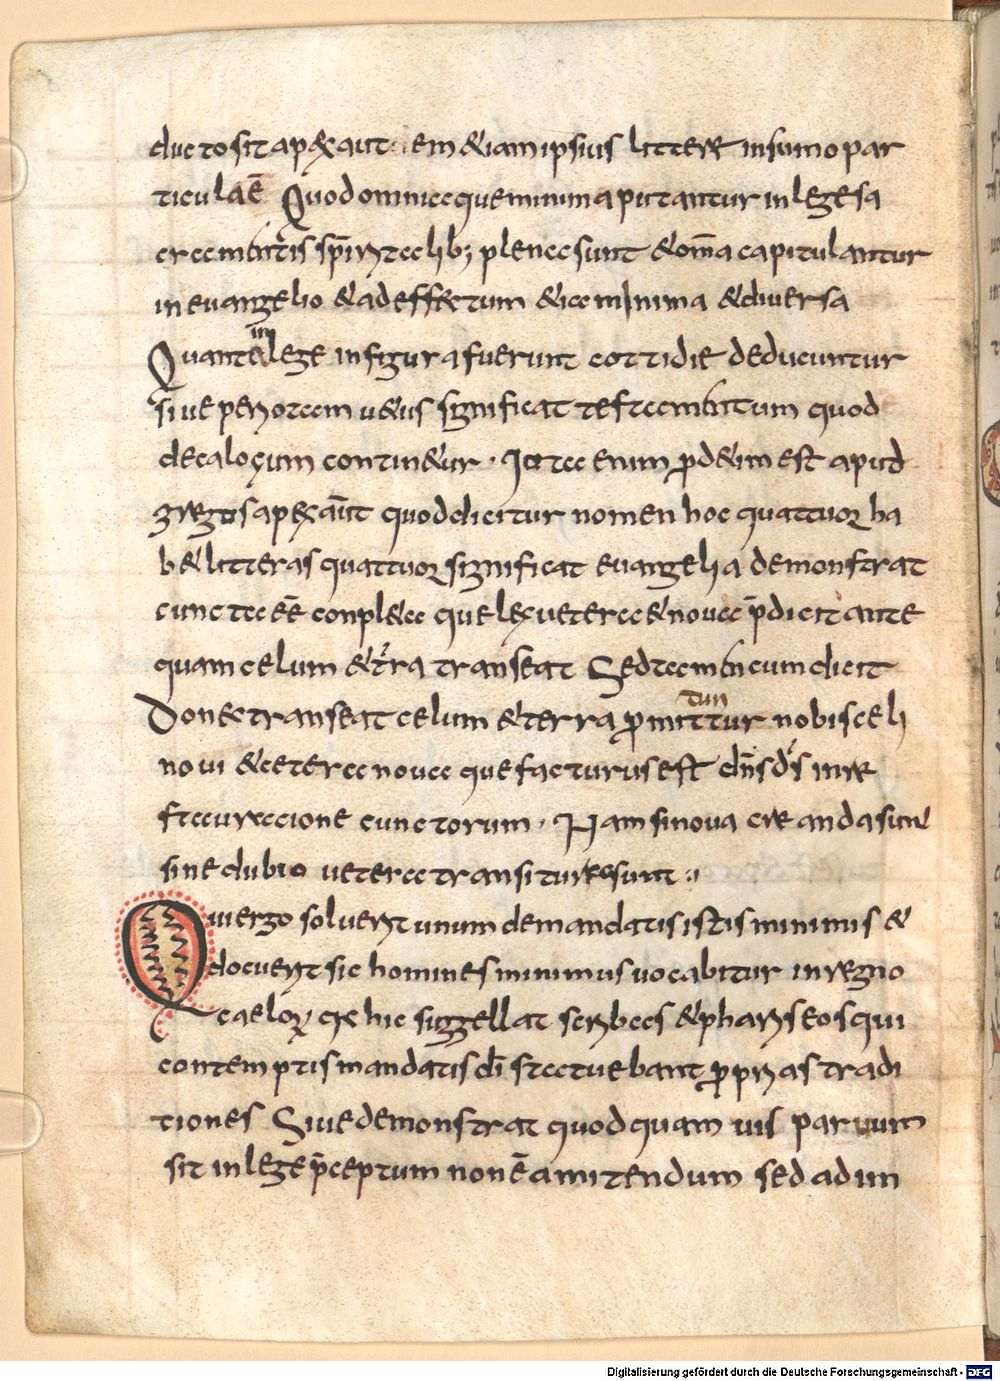 ducto sit apex aut em & iam ipsius litterę in sumo par
ticula ē Quod omnia que minima putantur in lege sa
cramentis spiritalib; plena sunt & om̄a capitulantur
in euangelio & ad effectum & iam minima & diuersa
Quanta in lege in figura fuerunt cottidie deducuntur
siue per iotam u&us significat testamentum quod
decalogum contin&ur · Iota enim p̄d&im est apud
gregos apex aūt quod dicitur nomen hoc quattuor ha
b& litteras quattuor significat euangelia demonstrat
cuncta eē conpl&a que lex uetera & noua p̄dicit ante
quam celum & t̄ra transeat Sed tamen cum dicit
Donec transeat celum & terra p̄mittuntur nobis celi
noui & cetera noua que facturus est dn̄s d̄s in re
staureccione cunctorum · Nam si noua creanda sunt
sine dubio uetera transitura sunt :,
Qui ergo soluerit unum de mandatis istis minimis &
docuerit sic homines minimus uocabitur in regno
caelor̄ qꝫ hic suggellat scribas & phariseos qui
contemptis mandatis dī statuebant p̱prias tradi
tiones Siue demonstrat quod quam uis paruum
sit in lege p̄ceptum non ē amitendum sed ad im
Digitalisierung gefördert durch die Deutsche Forschungsgemeinschaft - DFG